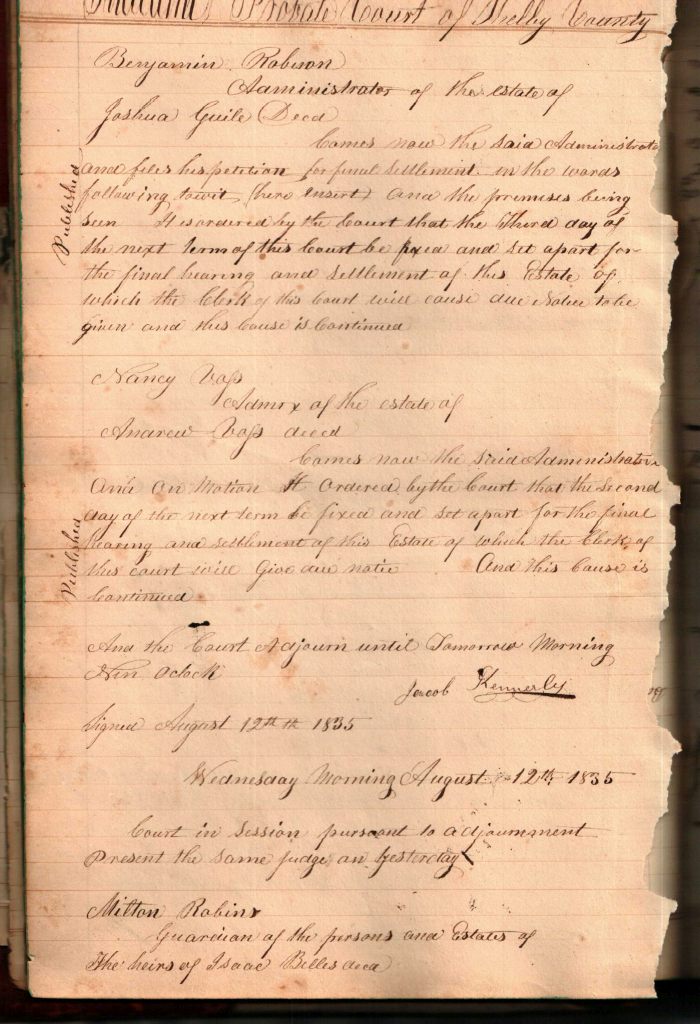 Probate Court of Shelby County
Benjamin Robison
Administrator of the estate of
Joshua Guile Decd
Comes now the said Administrato
and files his petition for final settlement in the words
following towit (here insert) and the premises being
seen It is ordered by the Court that the Third day of
the next term of this Court be fixed and set apart for
the final hearing and settlement of this Estate of
which the Clerk of this Court will cause due Notice to be
given and this Cause is Continued
Published
Nancy Voss
Admrx of the estate of
Andrew Voss decd
Comes now the said Administratrix
And on Motion It Ordered by the Court that the second
day of the next term be fixed and set apart for the final
hearing and settlement of this Estate of which the Clerk of
this court will Give due notice And this Cause is
Continued
Published
And the Court Adjourn until Tomorrow Morning
Nin oclock
Jacob Kennerly
Signed August 12th 1835
Wednesday Morning August 12th 1835
Court in Session pursuant to adjournment
Present the same judge as yesterday
Milton Robins
Guardian of the persons and Estates of
The heirs of Isaac Billes decd